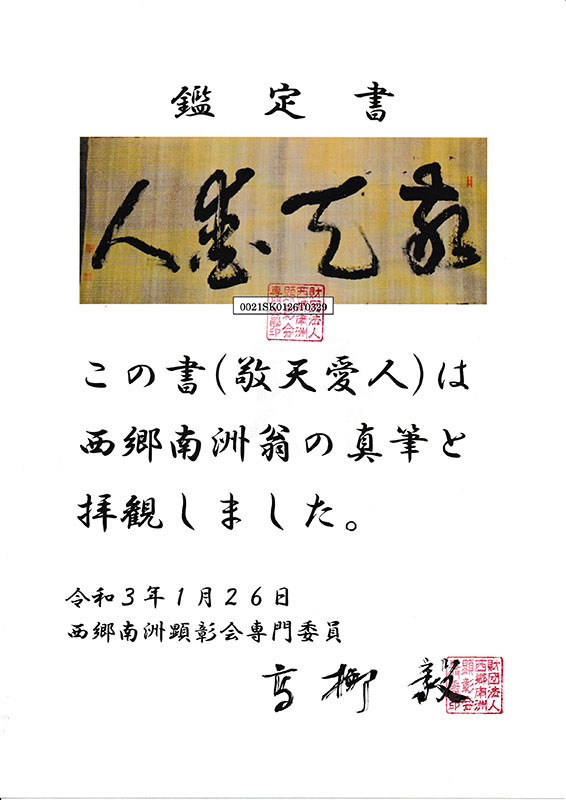 鑑定書
敬天愛人
0021SK0126T0329
この書(敬天愛人)は
西郷南洲翁の真筆と
拝観しました。
令和3年1月26日
西郷南洲顕彰会専門委員
高柳 毅
財団法人
西郷南洲
顕彰会